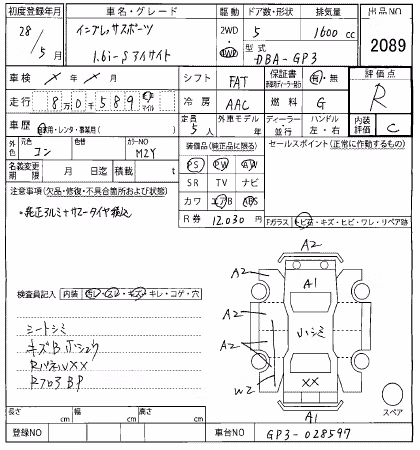 初度登録年月 車名・グレード 駆動 ドア数・形状 排気量 出品NO
28/5月 インプレッサスポーツ 1.6i-Sアイサイト 2WD 4WD 5 1600cc 2089
型式 DBA-GP3
車検 × 年 × 月 シフト FAT 保証書 有・無 評価点 R
走行 8万0千589 キロ マイル 冷房 AAC 燃料 G
車歴 自家用・レンタ・事業用( ) 定員 5人 外車モデル 年 ディーラー・並行 ハンドル 左・右 内装評価 C
外色 元色 コン 色替 カラーNO M2Y 装備品(純正品に限る) セールスポイント(正常に作動するもの)
名義変更期限 月 日迄 積載 t PS PW AW
注意事項(欠品・修復・不具合箇所および状態) SR TV ナビ
・純正アルミ+サマータイヤ積込 カワ エアB ABS
R券 12.030円 Fガラス トビ石・キズ・ヒビ・ワレ・リペア跡
検査員記入 内装 汚レ・スレ・キズ・キレ・コゲ・穴
シートシミ
キズB 小シュウ
RパネルXX
Rフロア BP
A2
A1
A2
A2
A2
小シミ
W2
XX
A1
スペア
長さ cm 幅 cm 高さ cm
登録NO 車台NO GP3-028597